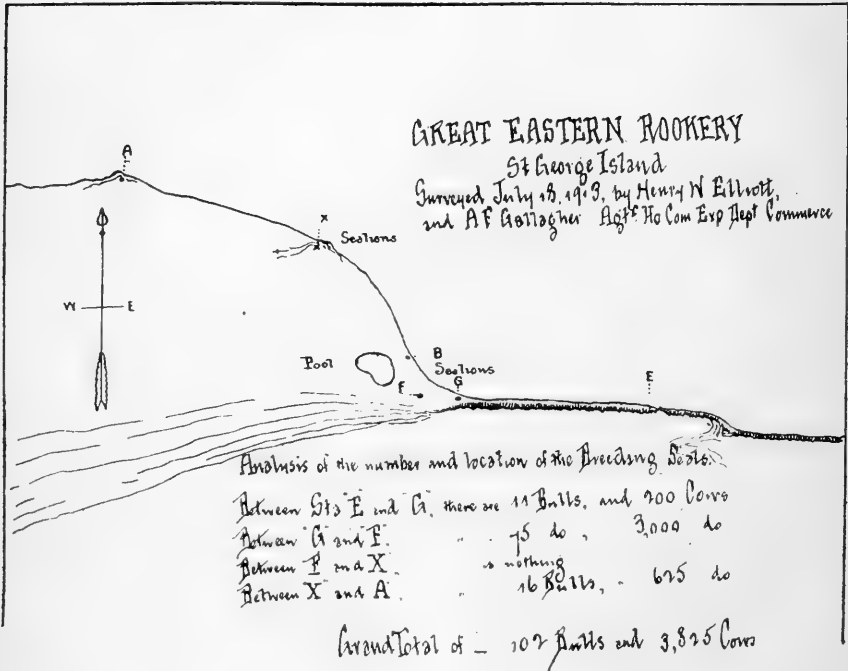 GREAT EASTERN ROOKERY
St George Island
Surveyed July 18, 1913, by Henry W Elliott,
and A F Gallagher Agts Ho Com Exp Dept Commerce
A
x
Sealions
W E
Pool
B
Sealions
F
G
E
Analysis of the number and location of the Breeding Seals.
Between Sta "E" and "G", there are 11 Bulls, and 200 Cows
Between "G" and "F". " . 75 do , 3,000 do
Between F and X . is nothing
Between "X" and A . " 16 Bulls, " 625 do
Grand Total of _ 102 Bulls and 3,825 Cows